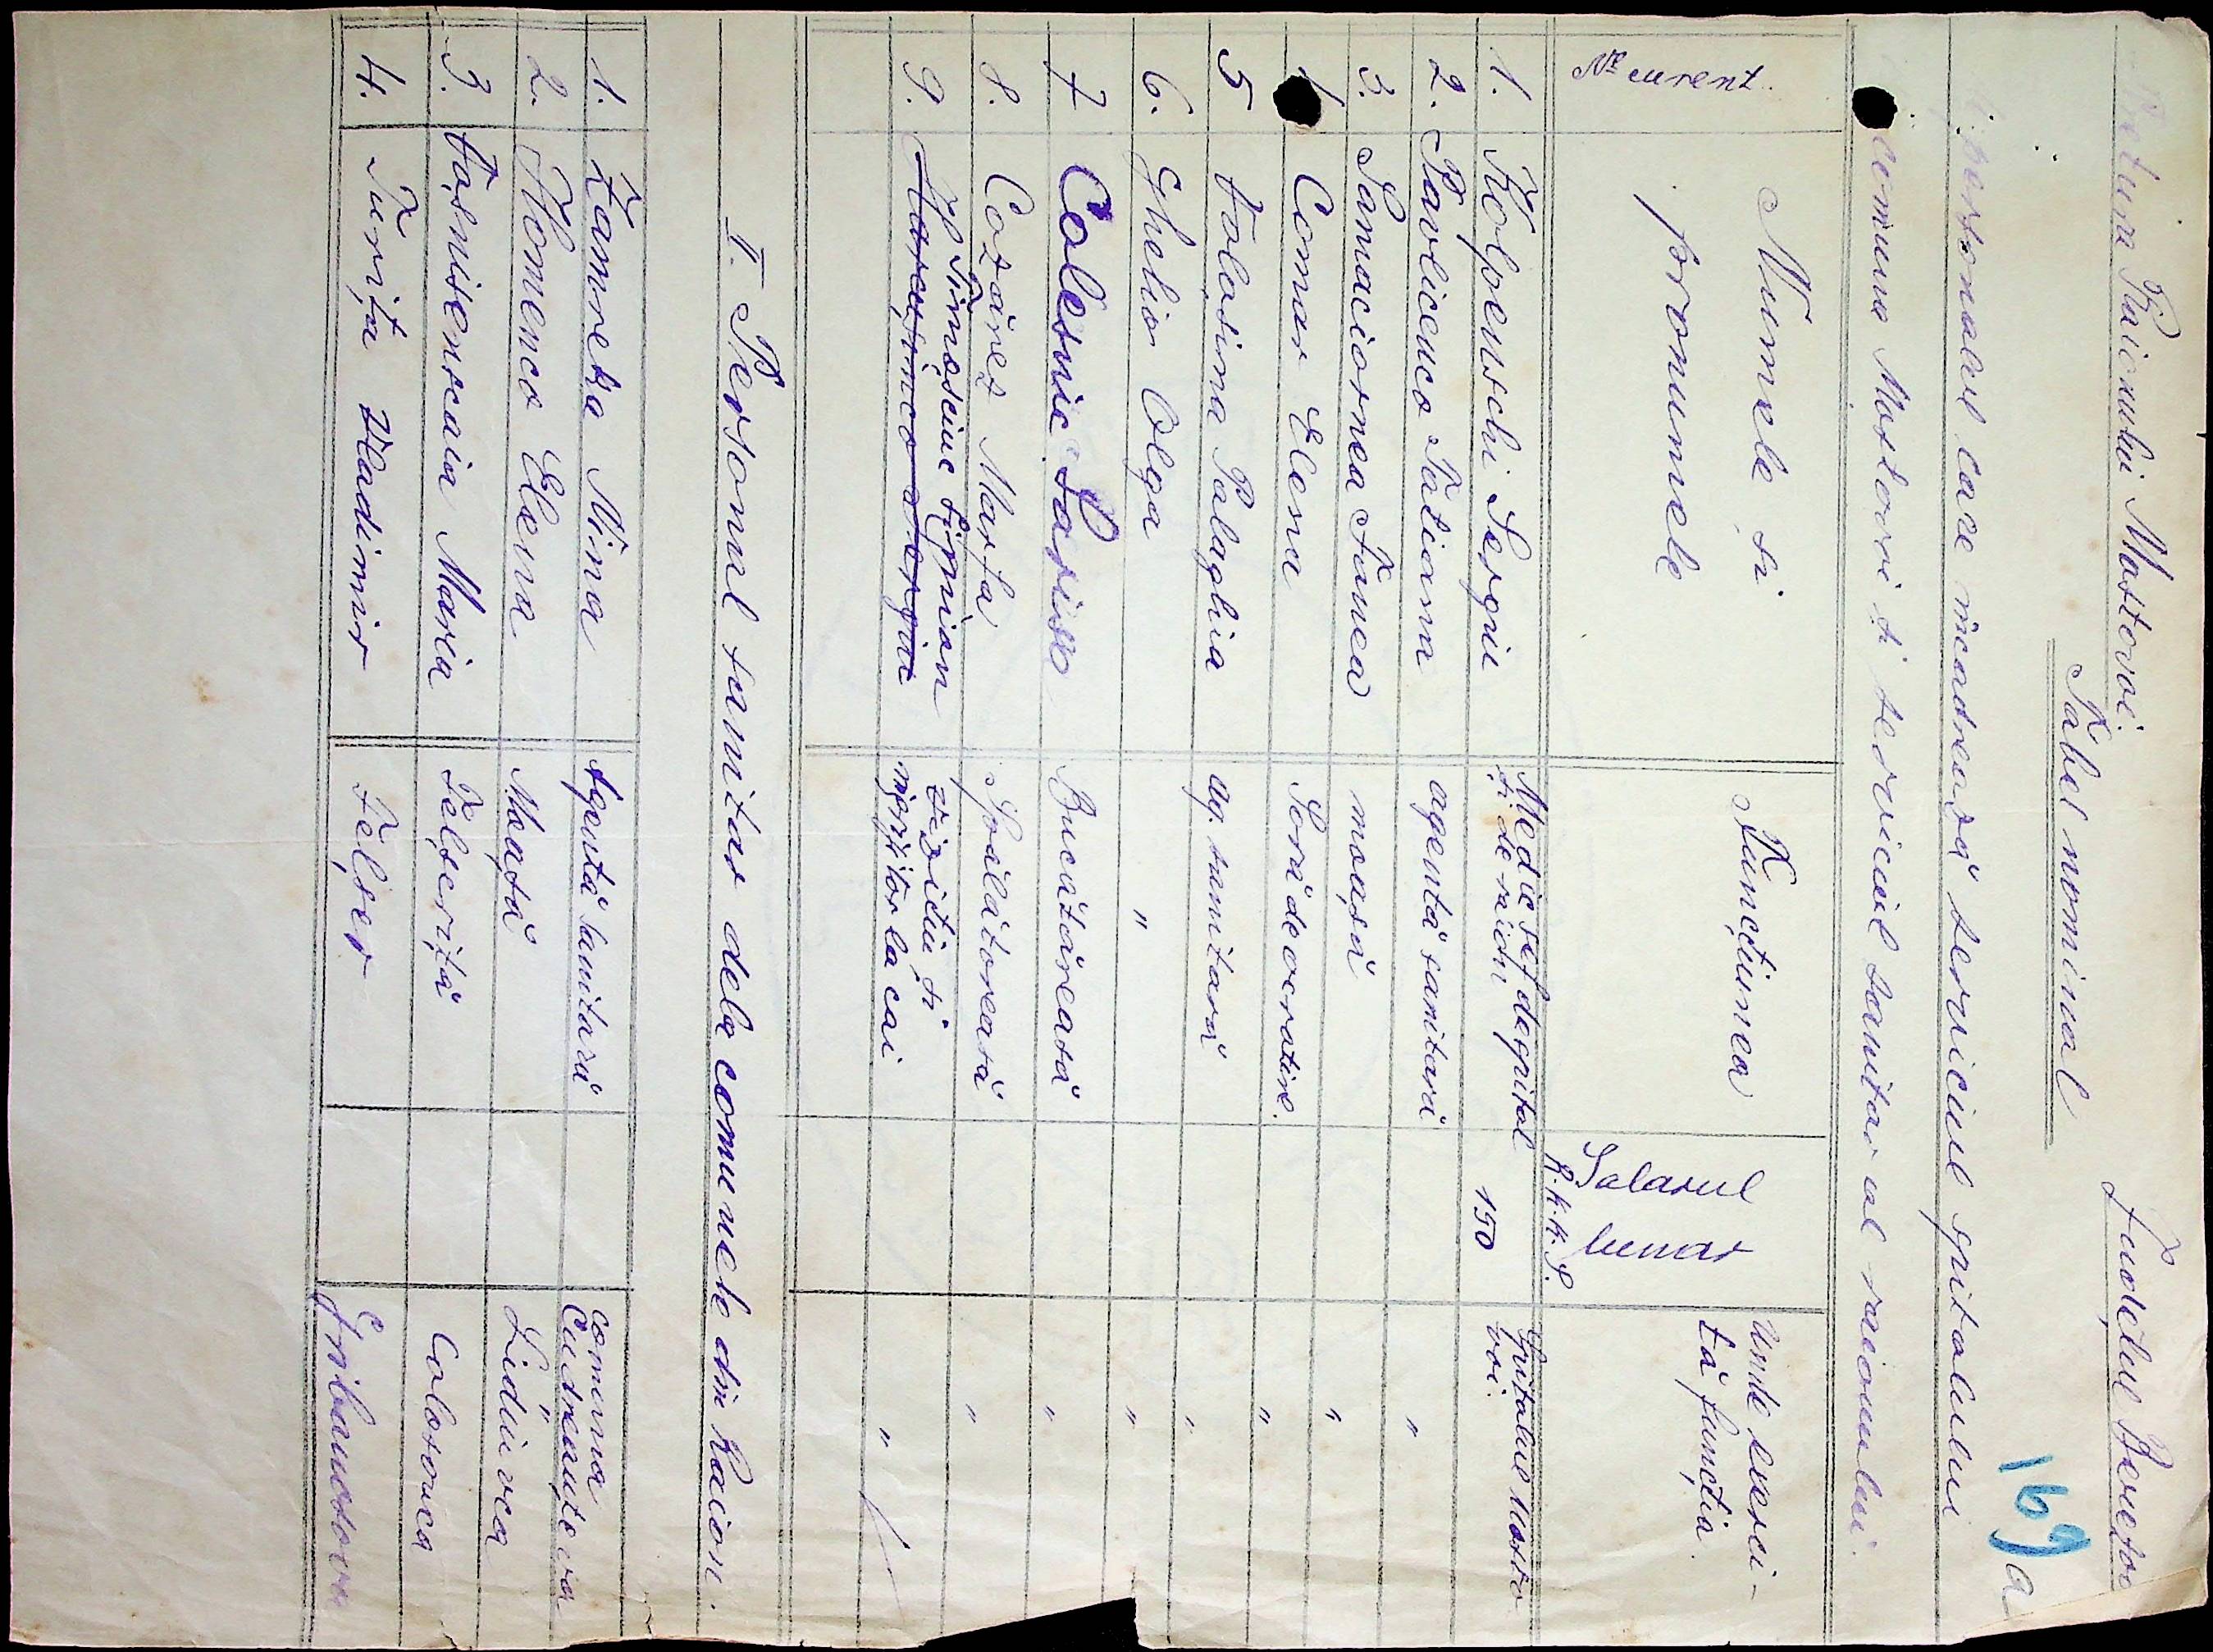 Pretura Raionului Mostovoi. Județul Berezov
169 a
Tabel nominal
personalul care încadrează serviciul spitalului
comuna Mostovoi și serviciul sanitar al raionului.
Nr curent Numele și pronumele Funcțiunea Salarul lunar R.K.K.S. Unde exercită funcția.
1. Kolpenschi Sergiu Medic șef de spital și de raion 150 Spitalul Mostovoi.
2. Pavlicenco Tatiana agentă sanitară "
3. Samaciornea Fanea moașă "
Comar Elena Soră de ocrotire. "
5 Volosina Palaghia ag. sanitară "
6. Ghelior Olga " "
7 Colesnic Pariso Bucătăreasă "
8. Cozărez Marfa Spălătoreasă "
Timosciuc Eifmion vizitiu și
9. îngrijitor la cai "
II. Personal sanitar dela comunele din Raion.
1. Zamreka Nina Agentă sanitară comuna Cudreauțeva
2. Homenco Elena Moașă " Lidiuvca
3. Vosnisenscaia Maria Felșeriță Colosovca
4. Turița Vladimir Felșer Gribanosova